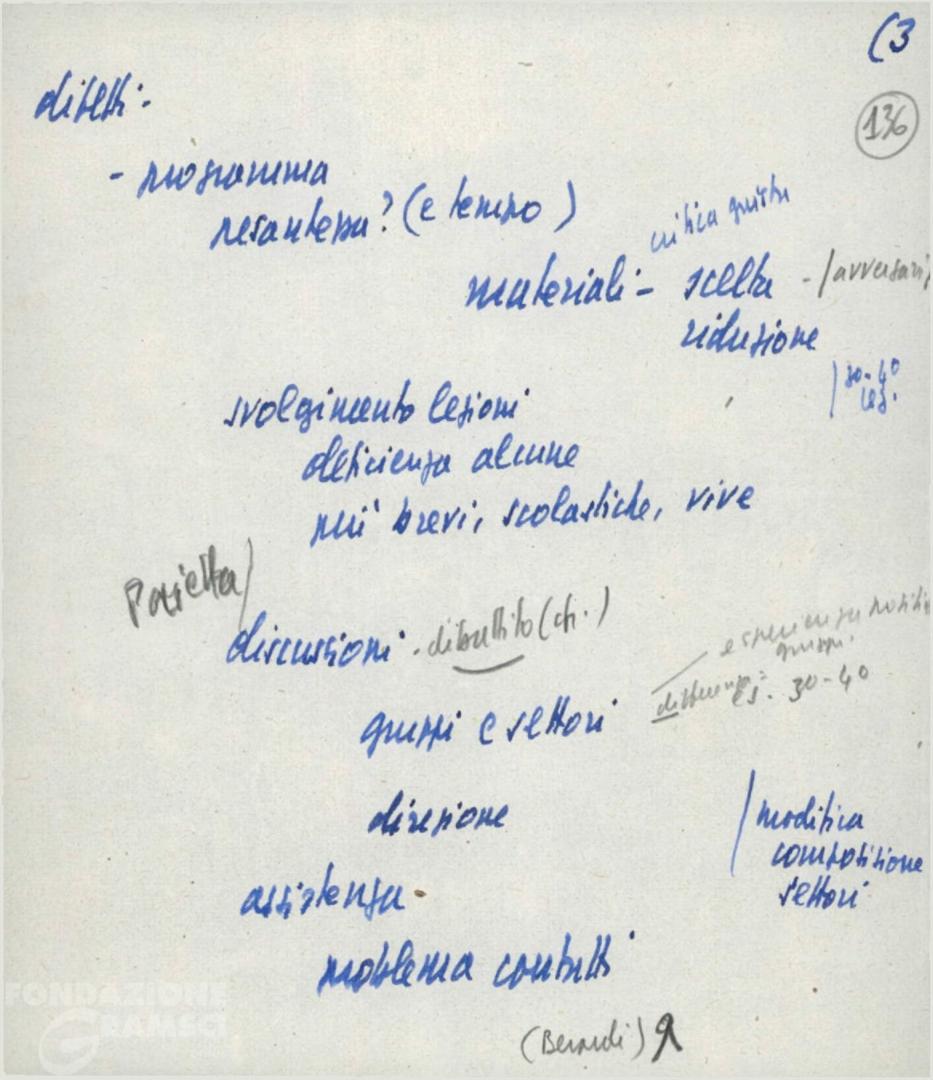 (3
136
difetti -
- programma
pesantezza? (e tempo)
critica giusta
materiali - scelta - /avversari
riduzione
/ 30-40
les.
svolgimento lezioni
deficienza alcune
più brevi, scolastiche, vive
Pajetta/
discussioni - dibattito (ch.)
esperienza positiva
gruppi
differenza es. 30-40
gruppi e settori
direzione
/ modifica
composizione
settori
assistenza
problema contatti
(Berardi)
FONDAZIONE
GRAMSCI